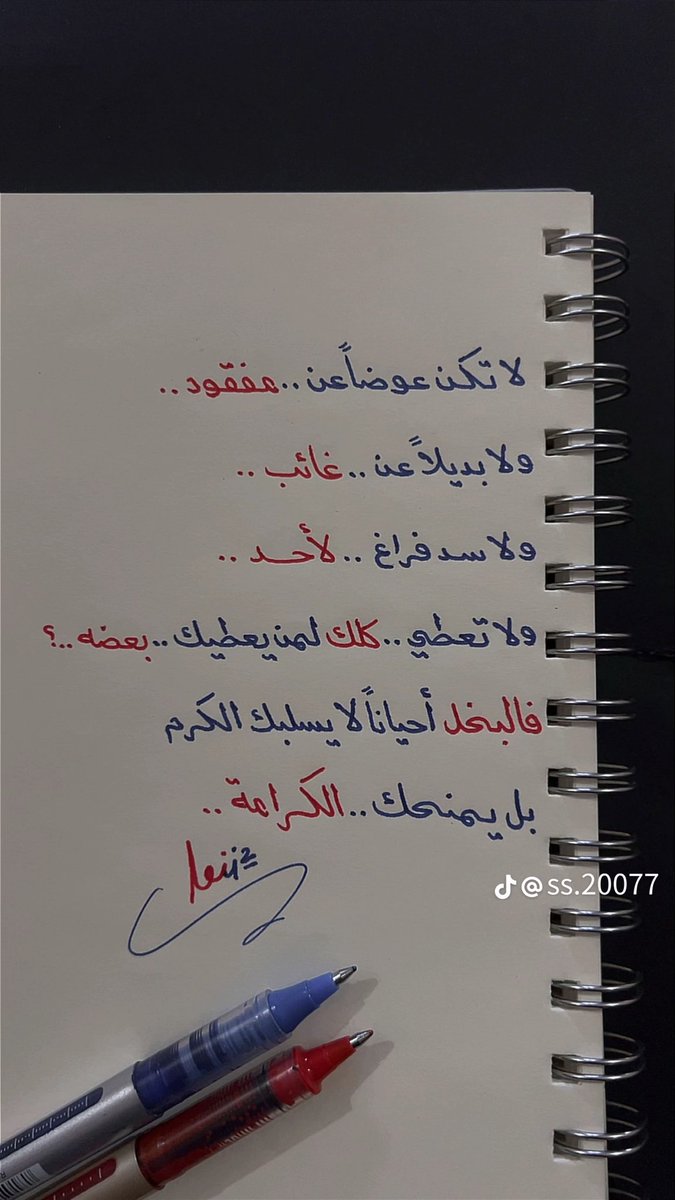 لا تكن عوضاً عن .. مفقود ..
ولا بديلاً عن .. غائب ..
ولا سد فراغ .. لأحد ..
ولا تعطي .. كلك لمن يعطيك .. بعضه ..؟
فالبخل أحياناً لا يسلبك الكرم
بل يمنحك .. الكرامة ..
@ss.20077